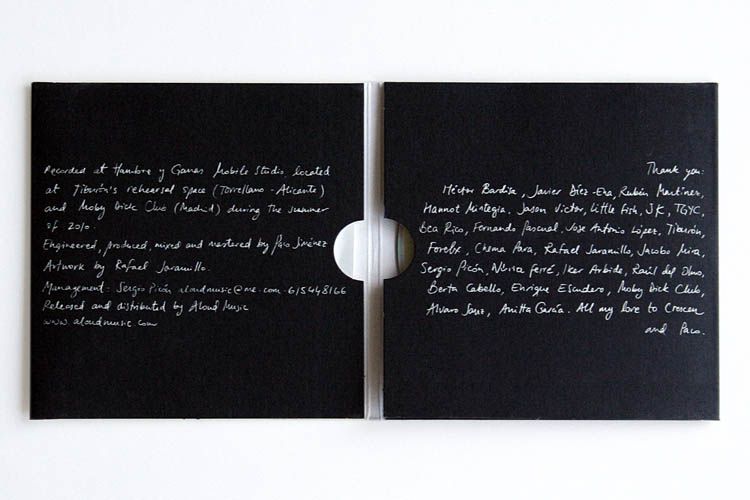 Recorded at Hambre y Ganas Mobile Studio, located
at Tiburón's rehearsal space (Torrellano - Alicante)
and Moby Dick Club (Madrid) during the summer
of 2010.
Engineered, produced, mixed and mastered by Paco Jiménez
Artwork by Rafael Jaramillo.
Management: Sergio Picón aloudmusic@me.com - 615448166
Released and distributed by Aloud Music
www.aloudmusic.com
Thank you:
Héctor Bardisa, Javier Díez-Ena, Rubén Martínez,
Mannot Mintegia, Jason Victor, Little Fish, JK, TGYC,
Bea Rico, Fernando Pascual, Jose Antonio López, Tiburón,
Chema Para, Rafael Jaramillo, Jacobo Mira,
Sergio Picón, Núria Ferré, Iker Arbide, Raúl del Olmo,
Berta Cabello, Enrique Escudero, Moby Dick Club,
Alvaro Sanz, Anitta García. All my love to
and Paco.